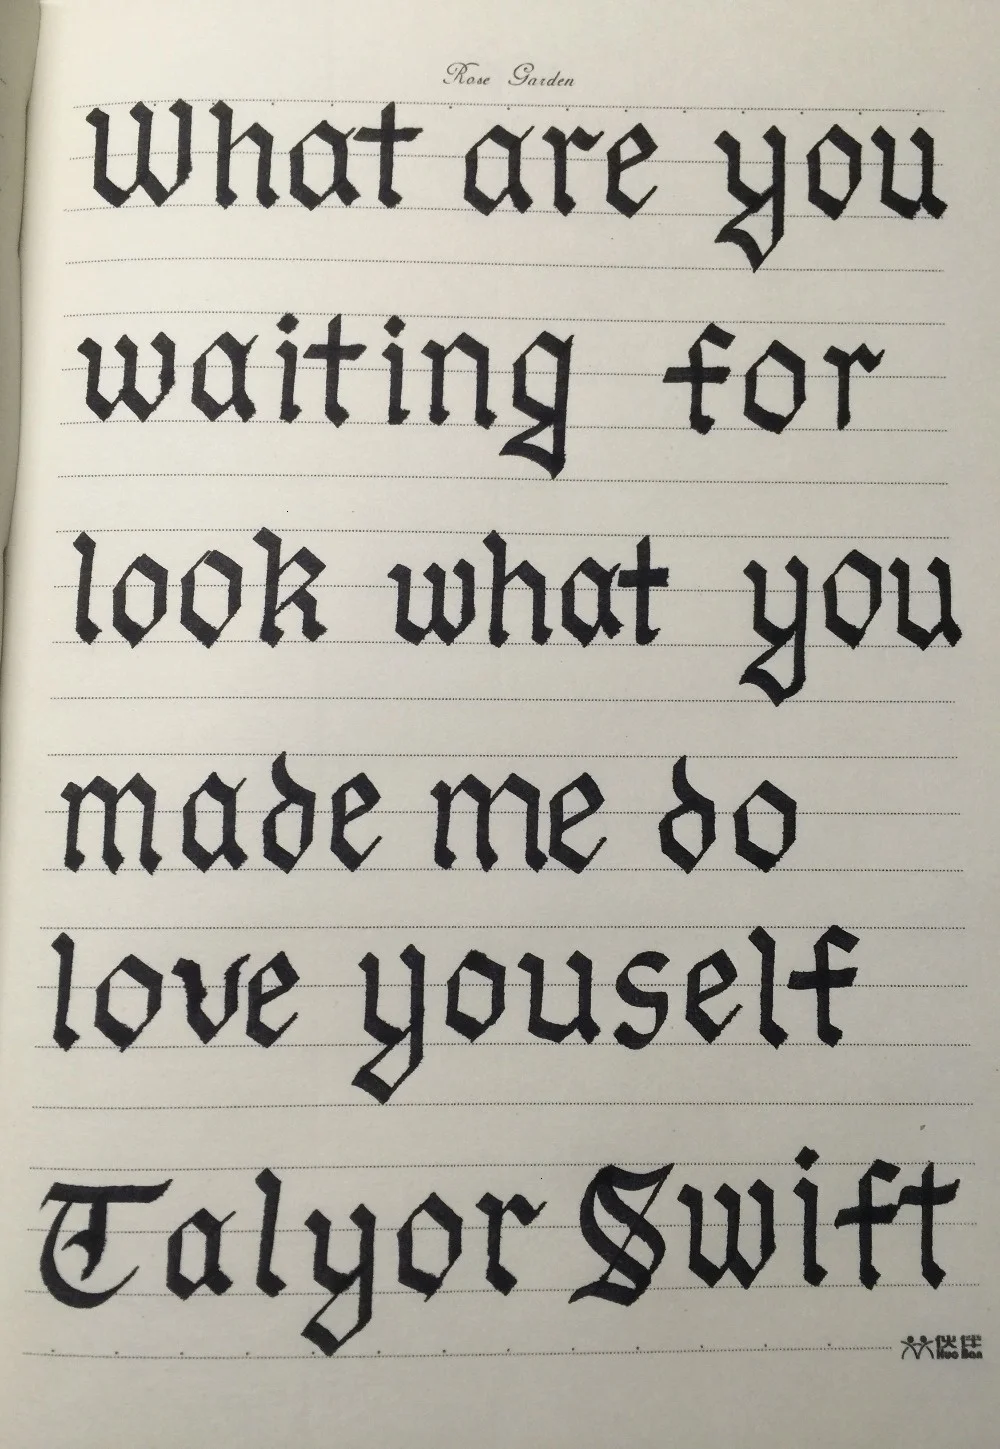 Rose Garden
What are you
waiting for
look what you
made me do
love youself
Talyor Swift
伙伴
Huo Ban